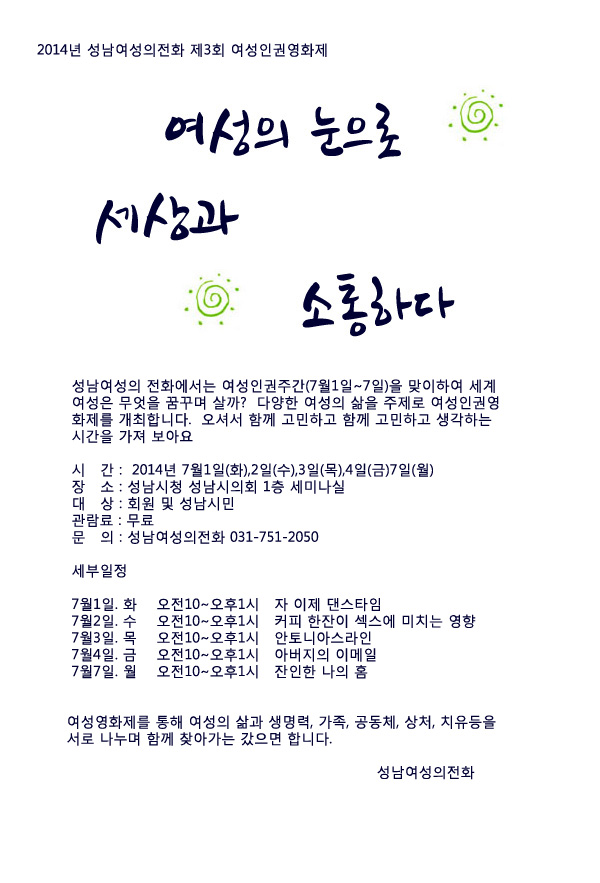 2014년 성남여성의전화 제3회 여성인권영화제
여성의 눈으로
세상과
소통하다
성남여성의 전화에서는 여성인권주간(7월1일~7일)을 맞이하여 세계
여성은 무엇을 꿈꾸며 살까? 다양한 여성의 삶을 주제로 여성인권영
화제를 개최합니다. 오셔서 함께 고민하고 함께 고민하고 생각하는
시간을 가져 보아요
시 간 : 2014년 7월1일(화),2일(수),3일(목),4일(금)7일(월)
장 소 : 성남시청 성남시의회 1층 세미나실
대 상 : 회원 및 성남시민
관람료 : 무료
문 의 : 성남여성의전화 031-751-2050
세부일정
7월1일. 화 오전10~오후1시 자 이제 댄스타임
7월2일. 수 오전10~오후1시 커피 한잔이 섹스에 미치는 영향
7월3일. 목 오전10~오후1시 안토니아스라인
7월4일. 금 오전10~오후1시 아버지의 이메일
7월7일. 월 오전10~오후1시 잔인한 나의 홈
여성영화제를 통해 여성의 삶과 생명력, 가족, 공동체, 상처, 치유등을
서로 나누며 함께 찾아가는 갔으면 합니다.
성남여성의전화